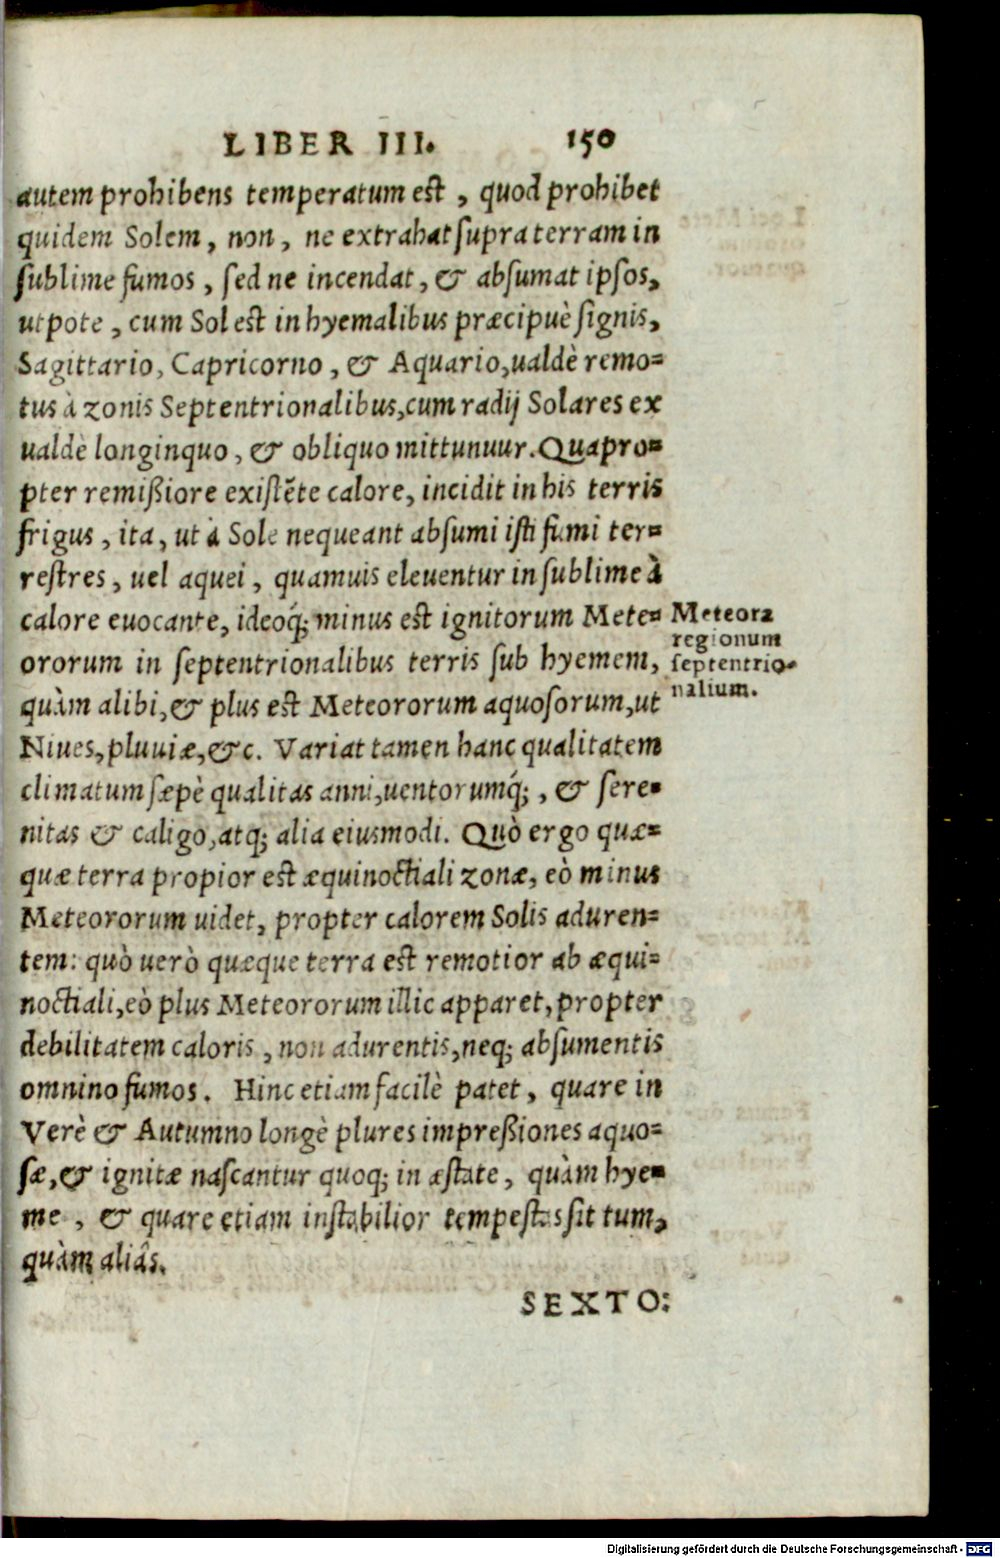 LIBER III. 150
autem prohibens temperatum est, quod prohibet
quidem Solem, non, ne extrahat supra terram in
sublime fumos, sed ne incendat, & absumat ipsos,
utpote, cum Sol est in hyemalibus præcipuè signis,
Sagittario, Capricorno, & Aquario, ualdè remo-
tus à zonis Septentrionalibus, cum radij Solares ex
ualdè longinquo, & obliquo mittunuur. Quapro-
pter remißiore existẽte calore, incidit in his terris
frigus, ita, ut à Sole nequeant absumi isti fumi ter-
restres, uel aquei, quamuis eleuentur in sublime à
calore euocante, ideoq́; minus est ignitorum Mete-
ororum in septentrionalibus terris sub hyemem,
quàm alibi, & plus est Meteororum aquosorum, ut
Niues, pluuiæ, &c. Variat tamen hanc qualitatem
climatum sæpè qualitas anni, uentorumq́;, & sere-
nitas & caligo, atq; alia eiusmodi. Quò ergo quæ-
quæ terra propior est æquinoctiali zonæ, eò minus
Meteororum uidet, propter calorem Solis aduren-
tem: quò uerò quæque terra est remotior ab æqui-
noctiali, eò plus Meteororum illic apparet, propter
debilitatem caloris, non adurentis, neq; absumentis
omnino fumos. Hinc etiam facilè patet, quare in
Verè & Autumno longè plures impreßiones aquo-
sæ, & ignitæ nascantur quoq; in æstate, quàm hye-
me, & quare etiam instabilior tempestas sit tum,
quàm aliâs.
SEXTO:
Meteora
regionum
septentrio-
nalium.
Digitalisierung gefördert durch die Deutsche Forschungsgemeinschaft - DFG